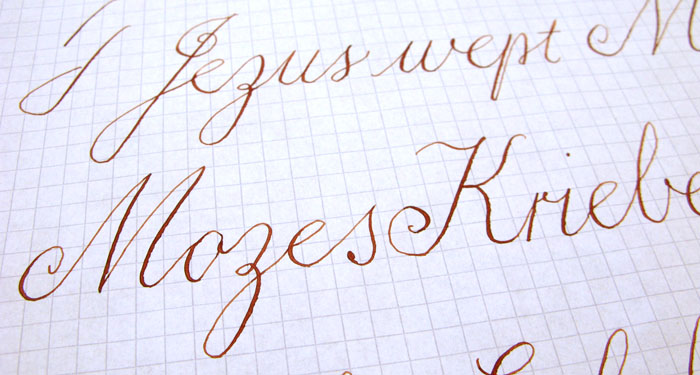 Jezus wept M
Mozes Kriebe